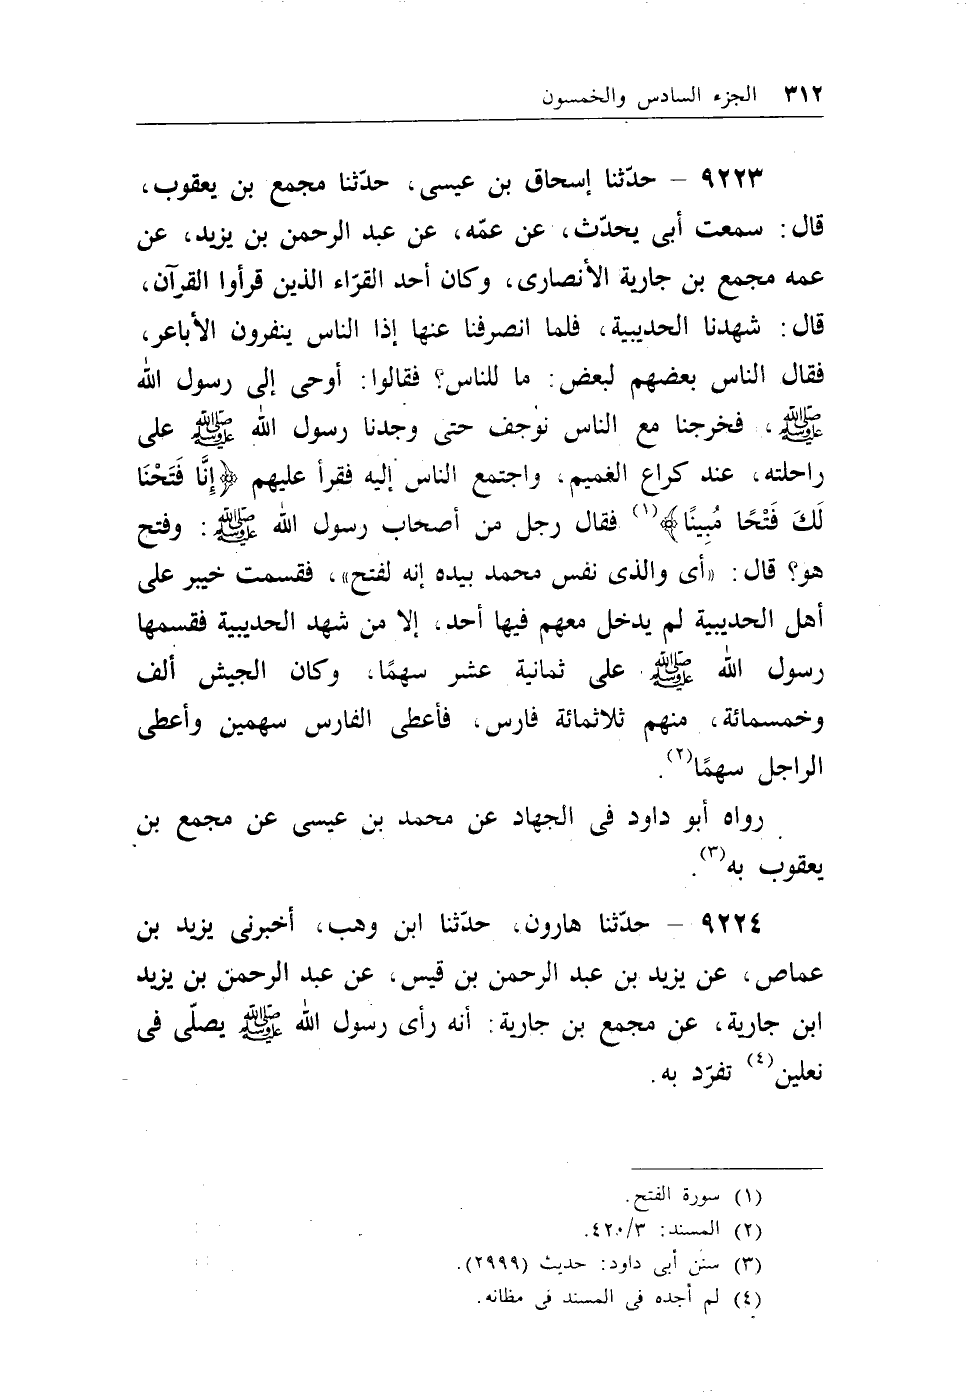 ٣١٢ الجزء السادس والخمسون
٩٢٢٣ – حدّثنا إسحاق بن عيسى، حدّثنا مجمع بن يعقوب،
قال: سمعت أبى يحدّث، عن عمّه، عن عبد الرحمن بن يزيد، عن
عمه مجمع بن جارية الأنصارى، وكان أحد القرّاء الذين قرأوا القرآن،
قال: شهدنا الحديبية، فلما انصرفنا عنها إذا الناس ينفرون الأباعر،
فقال الناس بعضهم لبعض: ما للناس؟ فقالوا: أوحى إلى رسول الله
ﷺ، فخرجنا مع الناس نوجف حتى وجدنا رسول الله ﷺ على
راحلته، عند كراع الغميم، واجتمع الناس إليه فقرأ عليهم ﴿إِنَّا فَتَحْنَا
لَكَ فَتْحًا مُبِينًا﴾(١) فقال رجل من أصحاب رسول الله ﷺ: وفتح
هو؟ قال: «أى والذى نفس محمد بيده إنه لفتح»، فقسمت خيبر على
أهل الحديبية لم يدخل معهم فيها أحد، إلا من شهد الحديبية فقسمها
رسول الله ﷺ على ثمانية عشر سهمًا، وكان الجيش ألف
وخمسمائة، منهم ثلاثمائة فارس، فأعطى الفارس سهمين وأعطى
الراجل سهمًا(٢).
رواه أبو داود فى الجهاد عن محمد بن عيسى عن مجمع بن
يعقوب به(٣).
٩٢٢٤ – حدّثنا هارون، حدّثنا ابن وهب، أخبرنى يزيد بن
عماص، عن يزيد بن عبد الرحمن بن قيس، عن عبد الرحمن بن يزيد
ابن جارية، عن مجمع بن جارية: أنه رأى رسول الله ﷺ يصلّى فى
نعلين(٤) تفرّد به.
(١) سورة الفتح.
(٢) المسند: ٤٢٠/٣.
(٣) سنن أبى داود: حديث (٢٩٩٩).
(٤) لم أجده فى المسند فى مظانه.